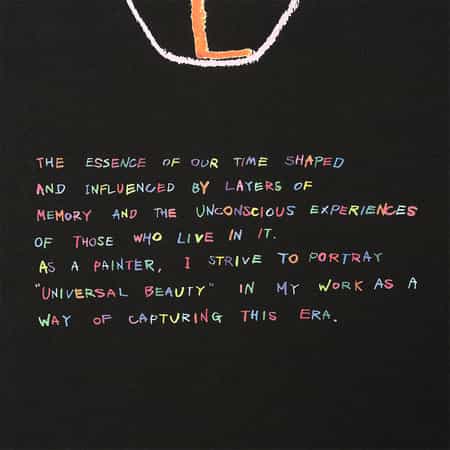 L
THE ESSENCE OF OUR TIME SHAPED
AND INFLUENCED BY LAYERS OF
MEMORY AND THE UNCONSCIOUS EXPERIENCES
OF THOSE WHO LIVE IN IT.
AS A PAINTER, I STRIVE TO PORTRAY
"UNIVERSAL BEAUTY" IN MY WORK AS A
WAY OF CAPTURING THIS ERA.